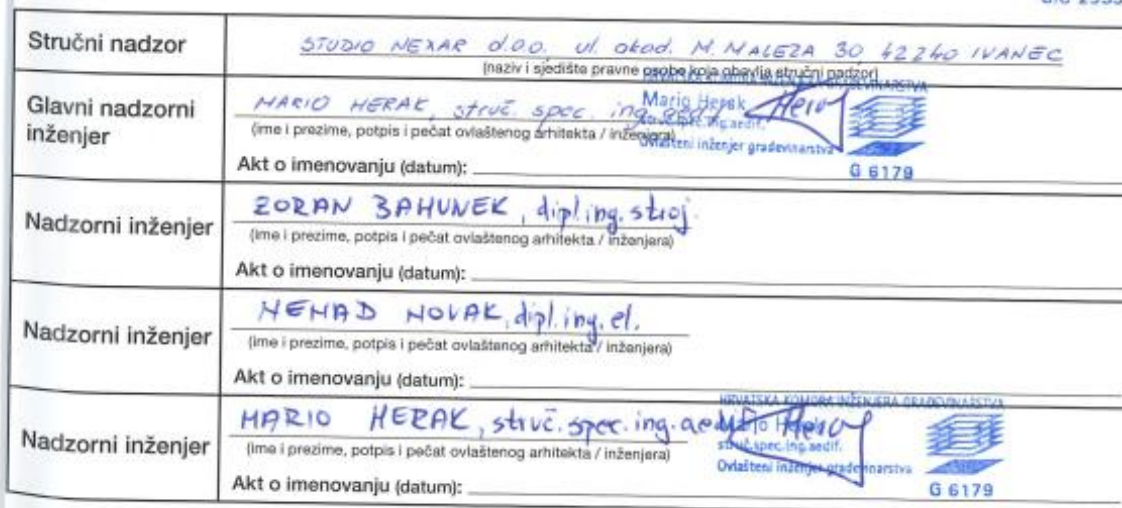 Stručni nadzor
STUDIO NEXAR d.o.o. ul. akad. M. MALEZA 30 42240 IVANEC
(naziv i sjedište pravne osobe koja obavlja stručni nadzor)
Glavni nadzorni inženjer
MARIO HERAK, struč. spec. ing. aedif.
(ime i prezime, potpis i pečat ovlaštenog arhitekta / inženjera)
HRVATSKA KOMORA INŽENJERA GRAĐEVINARSTVA
Mario Herak
struč.spec.ing.aedif.
Ovlašteni inženjer građevinarstva
G 6179
Akt o imenovanju (datum):
Nadzorni inženjer
ZORAN BAHUNEK, dipl.ing.stroj.
(ime i prezime, potpis i pečat ovlaštenog arhitekta / inženjera)
Akt o imenovanju (datum):
Nadzorni inženjer
NENAD NOVAK, dipl.ing.el.
(ime i prezime, potpis i pečat ovlaštenog arhitekta / inženjera)
Akt o imenovanju (datum):
Nadzorni inženjer
MARIO HERAK, struč.spec.ing.aedif.
(ime i prezime, potpis i pečat ovlaštenog arhitekta / inženjera)
HRVATSKA KOMORA INŽENJERA GRAĐEVINARSTVA
Mario Herak
struč.spec.ing.aedif.
Ovlašteni inženjer građevinarstva
G 6179
Akt o imenovanju (datum):